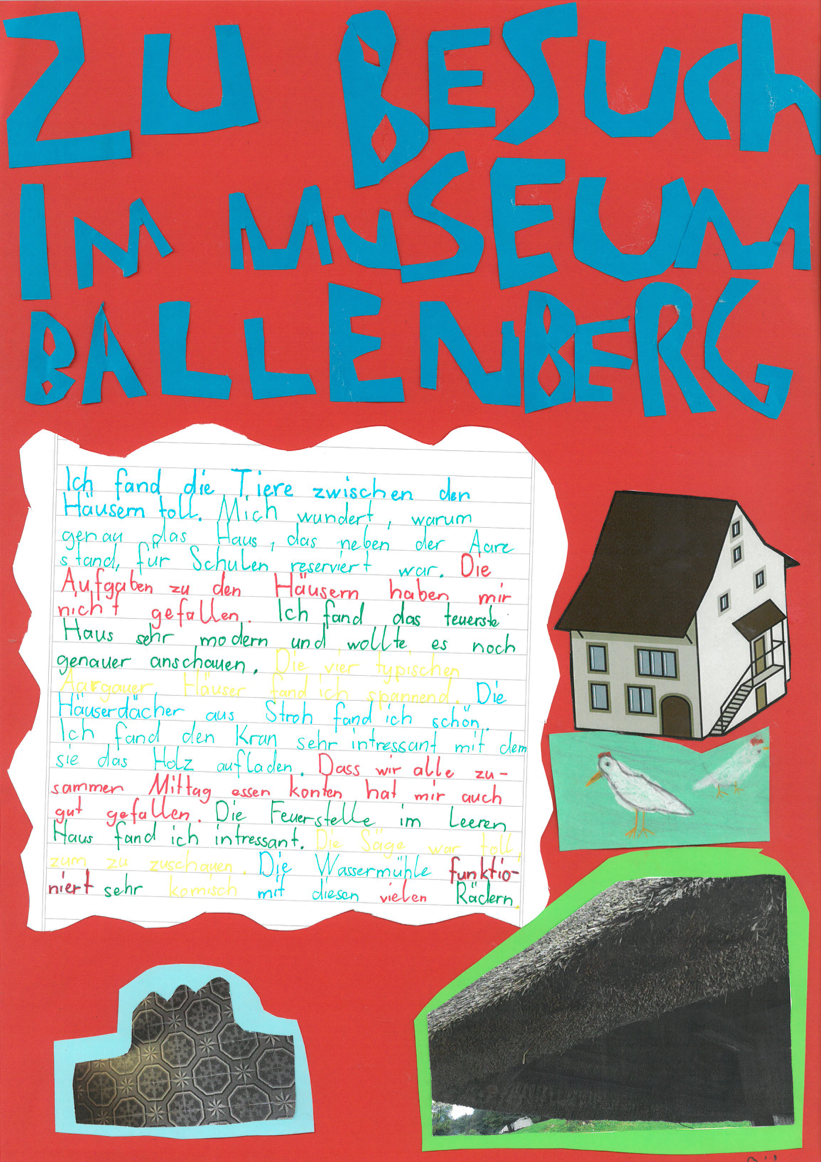 ZU BESUCh
IM MuSEUM
BALLENBERG
Ich fand die Tiere zwischen den
Häusern toll. Mich wundert, warum
genau das Haus, das neben der Aare
stand, für Schulen reserviert war. Die
Aufgaben zu den Häusern haben mir
nicht gefallen. Ich fand das teuerste
Haus sehr modern und wollte es noch
genauer anschauen. Die vier typischen
Aargauer Häuser fand ich spannend. Die
Häuserdächer aus Stroh fand ich schön.
Ich fand den Kran sehr intressant mit dem
sie das Holz aufladen. Dass wir alle zu-
sammen Mittag essen konten hat mir auch
gut gefallen. Die Feuerstelle im Leeren
Haus fand ich intressant. Die Säge war toll,
zum zu zuschauen. Die Wassermühle funktio-
niert sehr komisch mit diesen vielen Rädern.